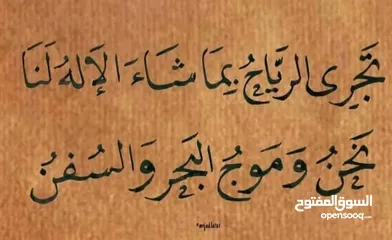 تَجْرِى الرِّيَاحُ بِمَا شَاءَ الإِلَهُ لَنَا
نَحْنُ وَمَوْجُ البَحْرِ وَالسُّفُنُ
السوق المفتوح
opensooq.com